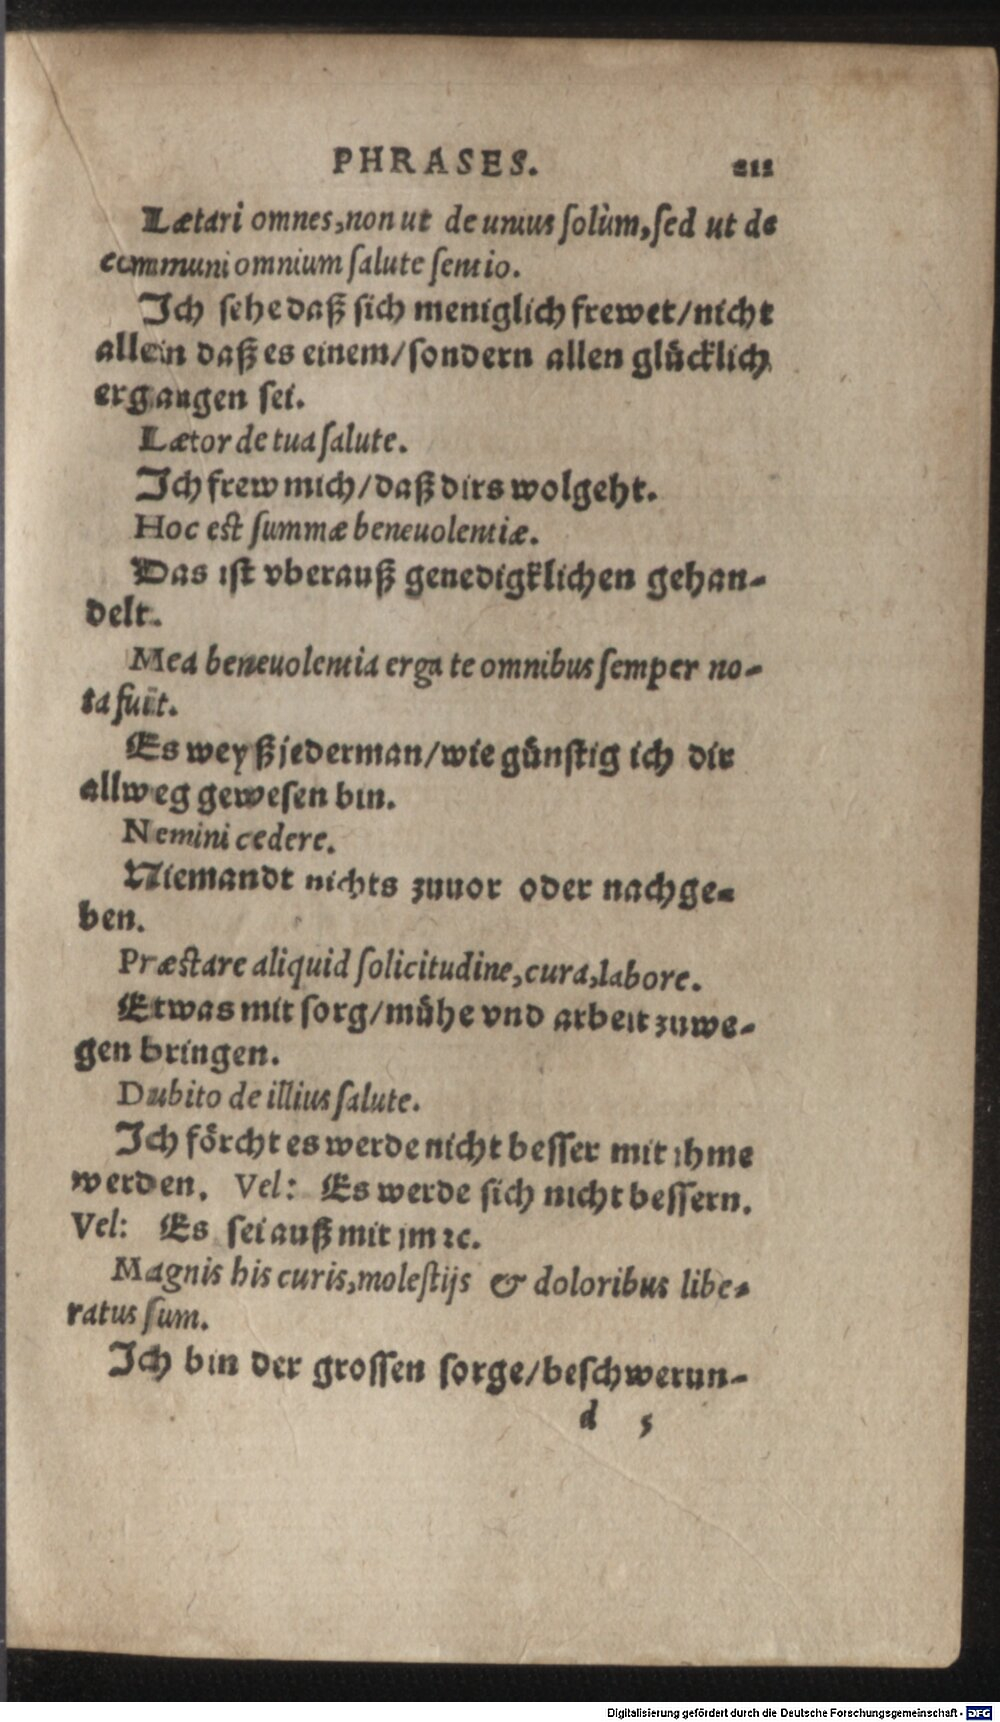 PHRASES. 212
Lætari omnes, non ut de unius ſolùm, ſed ut de
communi omnium ſalute ſentio.
Ich ſehe daß ſich meniglich frewet/nicht
allein daß es einem/ſondern allen glücklich
ergangen ſei.
Lætor de tua ſalute.
Ich frew mich/daß dirs wolgeht.
Hoc eſt ſummæ beneuolentiæ.
Das iſt vberauß genedigklichen gehan-
delt.
Mea beneuolentia erga te omnibus ſemper no-
ta fuit.
Es weyß jederman/wie günſtig ich dir
allweg geweſen bin.
Nemini cedere.
Niemandt nichts zuuor oder nachge-
ben.
Præſtare aliquid ſolicitudine, cura, labore.
Etwas mit ſorg/mühe vnd arbeit zuwe-
gen bringen.
Dubito de illius ſalute.
Ich förcht es werde nicht beſſer mit ihme
werden. Vel: Es werde ſich nicht beſſern.
Vel: Es ſei auß mit jm ꝛc.
Magnis his curis, moleſtijs & doloribus libe-
ratus ſum.
Ich bin der groſſen ſorge/beſchwerun-
d 5
Digitalisierung gefördert durch die Deutsche Forschungsgemeinschaft - DFG